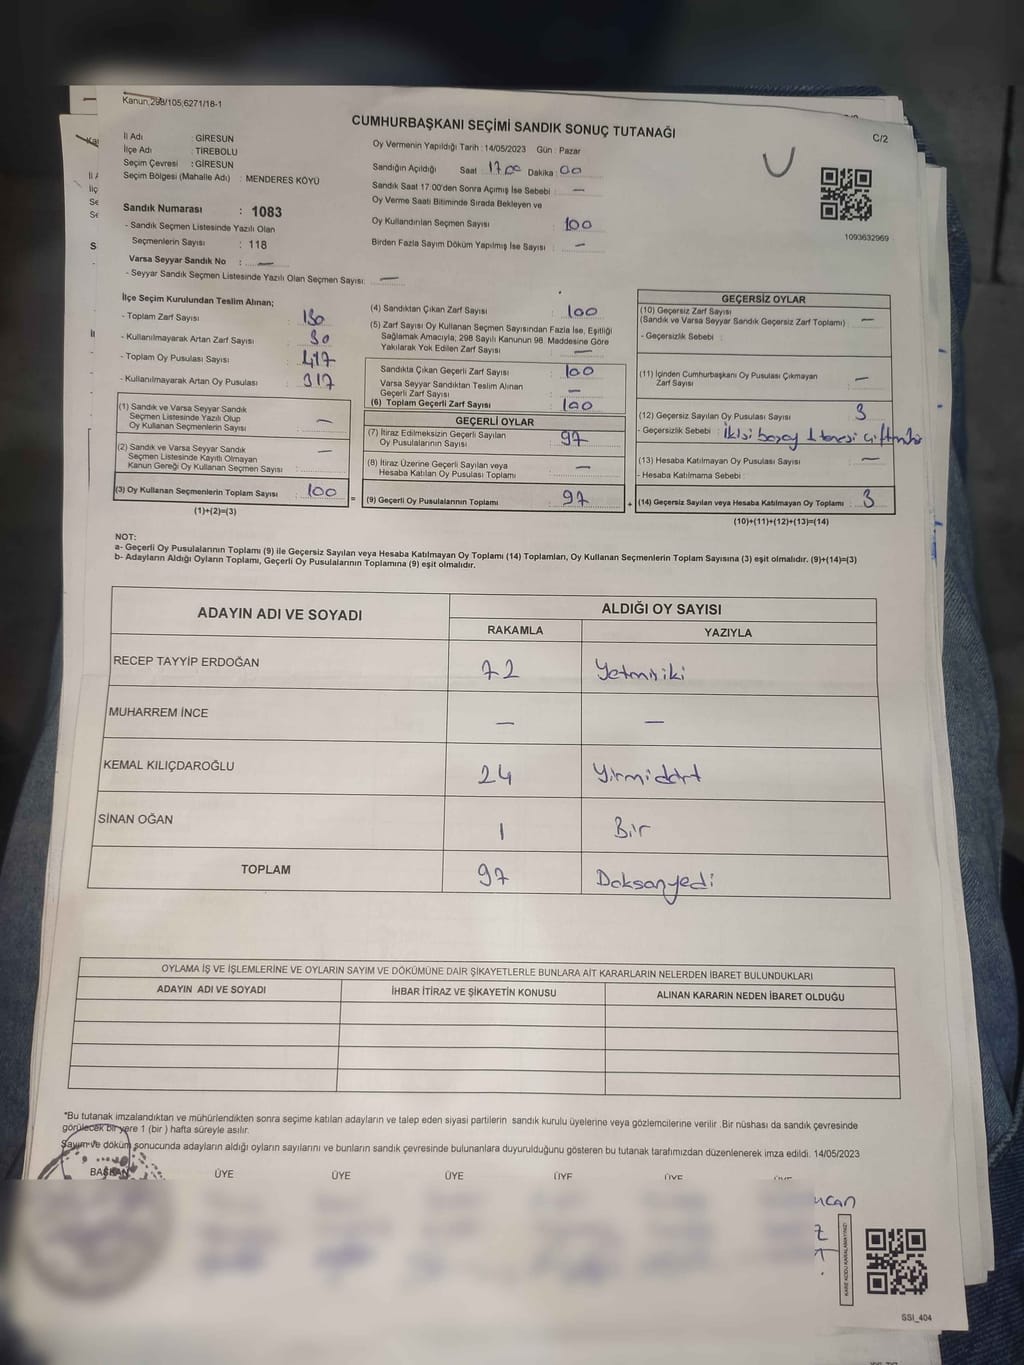 Kanun,298/105;6271/18-1
CUMHURBAŞKANI SEÇİMİ SANDIK SONUÇ TUTANAĞI
C/2
İl Adı : GİRESUN
İlçe Adı : TİREBOLU
Seçim Çevresi : GİRESUN
Seçim Bölgesi (Mahalle Adı) : MENDERES KÖYÜ
Sandık Numarası : 1083
- Sandık Seçmen Listesinde Yazılı Olan
Seçmenlerin Sayısı : 118
Varsa Seyyar Sandık No : —
- Seyyar Sandık Seçmen Listesinde Yazılı Olan Seçmen Sayısı: —
Oy Vermenin Yapıldığı Tarih : 14/05/2023 Gün : Pazar
Sandığın Açıldığı Saat 17.00 Dakika : 00
Sandık Saat 17:00'den Sonra Açımış İse Sebebi : —
Oy Verme Saati Bitiminde Sırada Bekleyen ve
Oy Kullandırılan Seçmen Sayısı : 100
Birden Fazla Sayım Döküm Yapılmış İse Sayısı : —
1093632969
İlçe Seçim Kurulundan Teslim Alınan;
- Toplam Zarf Sayısı : 130
- Kullanılmayarak Artan Zarf Sayısı : 30
- Toplam Oy Pusulası Sayısı : 417
- Kullanılmayarak Artan Oy Pusulası : 317
(1) Sandık ve Varsa Seyyar Sandık
Seçmen Listesinde Yazılı Olup
Oy Kullanan Seçmenlerin Sayısı : —
(2) Sandık ve Varsa Seyyar Sandık
Seçmen Listesinde Kayıtlı Olmayan
Kanun Gereği Oy Kullanan Seçmen Sayısı : —
(3) Oy Kullanan Seçmenlerin Toplam Sayısı : 100
(1)+(2)=(3)
(4) Sandıktan Çıkan Zarf Sayısı : 100
(5) Zarf Sayısı Oy Kullanan Seçmen Sayısından Fazla İse, Eşitliği
Sağlamak Amacıyla; 298 Sayılı Kanunun 98. Maddesine Göre
Yakılarak Yok Edilen Zarf Sayısı : —
Sandıkta Çıkan Geçerli Zarf Sayısı : 100
Varsa Seyyar Sandıktan Teslim Alınan
Geçerli Zarf Sayısı : —
(6) Toplam Geçerli Zarf Sayısı : 100
GEÇERLİ OYLAR
(7) İtiraz Edilmeksizin Geçerli Sayılan
Oy Pusulalarının Sayısı : 97
(8) İtiraz Üzerine Geçerli Sayılan veya
Hesaba Katılan Oy Pusulası Toplamı : —
(9) Geçerli Oy Pusulalarının Toplamı : 97
GEÇERSİZ OYLAR
(10) Geçersiz Zarf Sayısı
(Sandık ve Varsa Seyyar Sandık Geçersiz Zarf Toplamı) : —
- Geçersizlik Sebebi :
(11) İçinden Cumhurbaşkanı Oy Pusulası Çıkmayan
Zarf Sayısı : —
(12) Geçersiz Sayılan Oy Pusulası Sayısı : 3
- Geçersizlik Sebebi : İkisi
(13) Hesaba Katılmayan Oy Pusulası Sayısı : —
- Hesaba Katılmama Sebebi :
(14) Geçersiz Sayılan veya Hesaba Katılmayan Oy Toplamı : 3
(10)+(11)+(12)+(13)=(14)
NOT:
a- Geçerli Oy Pusulalarının Toplamı (9) ile Geçersiz Sayılan veya Hesaba Katılmayan Oy Toplamı (14) Toplamları, Oy Kullanan Seçmenlerin Toplam Sayısına (3) eşit olmalıdır. (9)+(14)=(3)
b- Adayların Aldığı Oyların Toplamı, Geçerli Oy Pusulalarının Toplamına (9) eşit olmalıdır.
ADAYIN ADI VE SOYADI ALDIĞI OY SAYISI
RAKAMLA YAZIYLA
RECEP TAYYİP ERDOĞAN 72 Yetmişiki
MUHARREM İNCE — —
KEMAL KILIÇDAROĞLU 24 Yirmidört
SİNAN OĞAN 1 Bir
TOPLAM 97 Doksanyedi
OYLAMA İŞ VE İŞLEMLERİNE VE OYLARIN SAYIM VE DÖKÜMÜNE DAİR ŞİKAYETLERLE BUNLARA AİT KARARLARIN NELERDEN İBARET BULUNDUKLARI
ADAYIN ADI VE SOYADI İHBAR İTİRAZ VE ŞİKAYETİN KONUSU ALINAN KARARIN NEDEN İBARET OLDUĞU
*Bu tutanak imzalandıktan ve mühürlendikten sonra seçime katılan adayların ve talep eden siyasi partilerin sandık kurulu üyelerine veya gözlemcilerine verilir .Bir nüshası da sandık çevresinde
görülecek bir yere 1 (bir ) hafta süreyle asılır.
Sayım ve döküm sonucunda adayların aldığı oyların sayılarını ve bunların sandık çevresinde bulunanlara duyurulduğunu gösteren bu tutanak tarafımızdan düzenlenerek imza edildi. 14/05/2023
BAŞKAN ÜYE ÜYE ÜYE ÜYE ÜYE ÜYE
KARE KODU KARALAMAYINIZ!
SSI_404